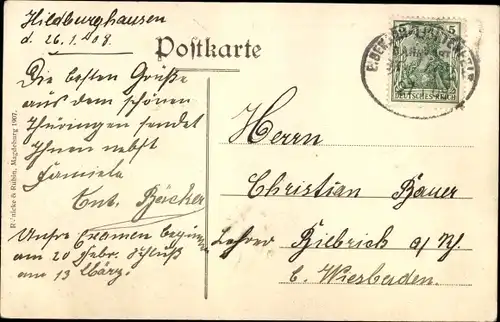 Hildburghausen
d. 26.1.08.
Postkarte
Die besten Grüße
aus dem schönen
Thüringen sendet
Ihnen nebst
Familie
Ant. Böcker
Unsre Examen beginnen
am 20 Febr. Schluß
am 13 März.
Reinicke & Rubin, Magdeburg 1907.
5
DEUTSCHES REICH
Herrn
Christian Bauer
Lehrer Biebrich a/Rh.
b. Wiesbaden.